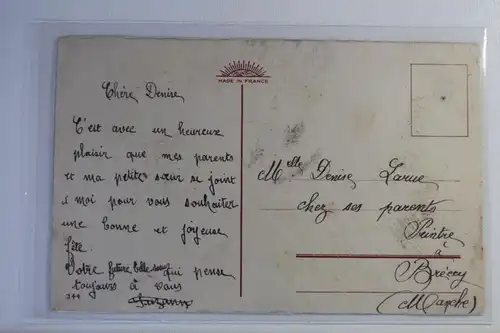 MADE IN FRANCE
Chère Denise
C'est avec un heureux
plaisir que mes parents
et ma petite sœur se joint
à moi pour vous souhaiter
une bonne et joyeuse
fête.
Votre future belle sœur qui pense
toujours à vous
Suzanne
344
Melle Denise Larue
chez ses parents
Peintre
à
Brécey
(Manche)